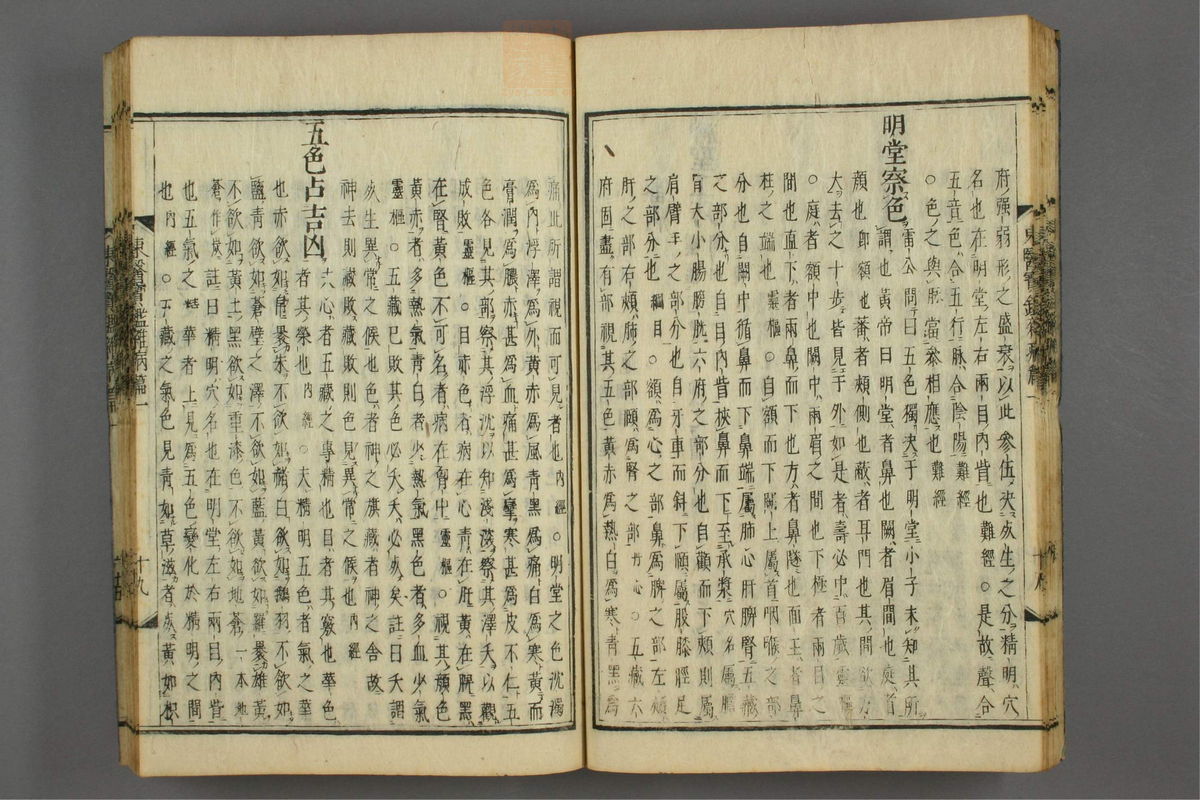 府強弱形之盛衰以此參伍決死生之分精明穴
名也在明堂左右兩目內眥也難經○是故聲合
五音色合五行脉合陰陽難經
○色之與脉當參相應也難經
明堂察色
雷公問曰五色獨決于明堂小子未知其所
謂也黃帝曰明堂者鼻也闕者眉間也庭者
顔也卽額也蕃者頰側也蔽者耳門也其間欲方
大去之十步皆見于外如是者壽必中百歲靈樞
○庭者額中也闕中兩眉之間也下極者兩目之
間也直下者兩鼻而下也方者鼻隧也面王者鼻
柱之端也靈樞○自額而下闕上屬首咽喉之部
分也自闕中循鼻而下鼻端屬肺心肝脾腎五藏
之部分也自目內眥挾鼻而下至承漿穴名屬膽
胃大小腸膀胱六府之部分也自顴而下頰則屬
肩臂手之部分也自牙車而斜下頤屬股膝脛足
之部分也綱目○額爲心之部鼻爲脾之部左頰
肝之部右頰肺之部頤爲腎之部丹心○五藏六
府固盡有部視其五色黃赤爲熱白爲寒青黑爲
痛此所謂視而可見者也內經○明堂之色沈濁
爲內浮澤爲外黃赤爲風青黑爲痛白爲寒黃而
膏潤爲膿赤甚爲血痛甚爲攣寒甚爲皮不仁五
色各見其部察其浮沈以知淺深察其澤夭以觀
成敗靈樞○目赤色者病在心青在肝黃在脾黑
在腎黃色不可名者病在胷中靈樞○視其顔色
黃赤者多熱氣青白者少熱氣黑色者多血少氣
靈樞○五藏已敗其色必夭夭必死矣註曰夭謂
死生異常之候也色者神之旗藏者神之舍故
神去則藏敗藏敗則色見異常之候也內經
五色占吉凶
六心者五藏之專精也目者其竅也華色
者其榮也內經○夫精明五色者氣之華
也赤欲如帛裹朱不欲如赭白欲如鵝羽不欲如
鹽青欲如蒼璧之澤不欲如藍黃欲如羅裹雄黃
不欲如黃土黑欲如重漆色不欲如地蒼一本地
蒼作炭註曰精明穴名也在明堂左右兩目內眥
也五氣之精華者上見爲五色變化於精明之間
也內經○五藏之氣色見青如草滋者死黃如枳
十九